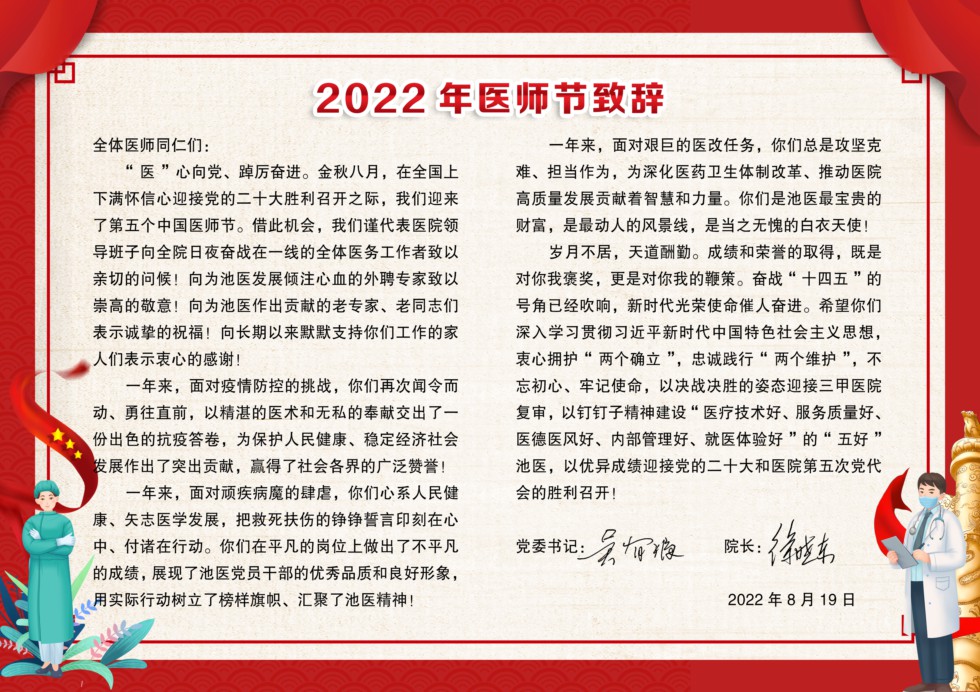 2022 年医师节致辞
全体医师同仁们：
“ 医 ” 心向党、踔厉奋进。金秋八月，在全国上
下满怀信心迎接党的二十大胜利召开之际，我们迎来
了第五个中国医师节。借此机会，我们谨代表医院领
导班子向全院日夜奋战在一线的全体医务工作者致以
亲切的问候！向为池医发展倾注心血的外聘专家致以
崇高的敬意！向为池医作出贡献的老专家、老同志们
表示诚挚的祝福！向长期以来默默支持你们工作的家
人们表示衷心的感谢！
一年来，面对疫情防控的挑战，你们再次闻令而
动、勇往直前，以精湛的医术和无私的奉献交出了一
份出色的抗疫答卷，为保护人民健康、稳定经济社会
发展作出了突出贡献，赢得了社会各界的广泛赞誉！
一年来，面对顽疾病魔的肆虐，你们心系人民健
康、矢志医学发展，把救死扶伤的铮铮誓言印刻在心
中、付诸在行动。你们在平凡的岗位上做出了不平凡
的成绩，展现了池医党员干部的优秀品质和良好形象，
用实际行动树立了榜样旗帜、汇聚了池医精神！
一年来，面对艰巨的医改任务，你们总是攻坚克
难、担当作为，为深化医药卫生体制改革、推动医院
高质量发展贡献着智慧和力量。你们是池医最宝贵的
财富，是最动人的风景线，是当之无愧的白衣天使！
岁月不居，天道酬勤。成绩和荣誉的取得，既是
对你我褒奖，更是对你我的鞭策。奋战 “ 十四五 ” 的
号角已经吹响，新时代光荣使命催人奋进。希望你们
深入学习贯彻习近平新时代中国特色社会主义思想，
衷心拥护 “ 两个确立 ”，忠诚践行 “ 两个维护 ”，不
忘初心、牢记使命，以决战决胜的姿态迎接三甲医院
复审，以钉钉子精神建设 “ 医疗技术好、服务质量好、
医德医风好、内部管理好、就医体验好 ” 的 “ 五好 ”
池医，以优异成绩迎接党的二十大和医院第五次党代
会的胜利召开！
党委书记：
院长：
2022 年 8 月 19 日